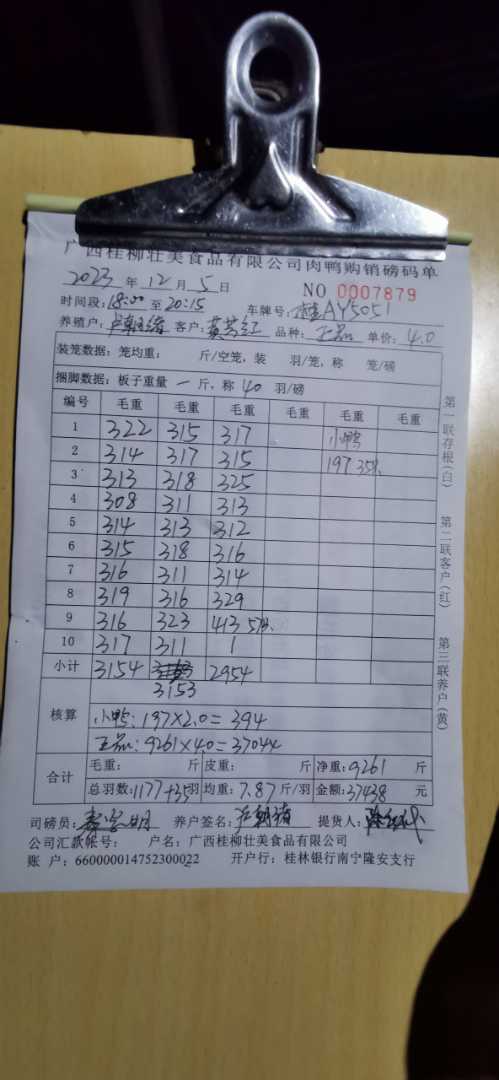 广西桂柳壮美食品有限公司肉鸭购销磅码单
2023 年 12 月 5 日 NO 0007879
时间段:18:00 至 20:15 车牌号: 桂AY5051
养殖户: 客户: 品种: 正品 单价: 4.0
装笼数据: 笼均重: 斤/空笼, 装 羽/笼, 称 笼/磅
捆脚数据: 板子重量 一 斤, 称 40 羽/磅
编号 毛重 毛重 毛重 毛重 毛重 毛重
1 322 315 317 小鸭
2 314 317 315 197 35只
3 313 318 325
4 308 311 313
5 314 313 312
6 315 318 316
7 316 311 314
8 319 316 329
9 316 323 413 57只
10 317 311 1
小计 3154 3153 2954
核算 小鸭: 197×2.0=394
正品: 9261×4.0=37044
合计 毛重: 斤 皮重: 斤 净重: 9261 斤
总羽数: 1177+35 羽 均重: 7.87 斤/羽 金额: 37438 元
司磅员: 养户签名: 提货人:
公司汇款帐号: 户名: 广西桂柳壮美食品有限公司
账 户: 660000014752300022 开户行: 桂林银行南宁隆安支行
第一联存根(白)
第二联客户(红)
第三联养户(黄)